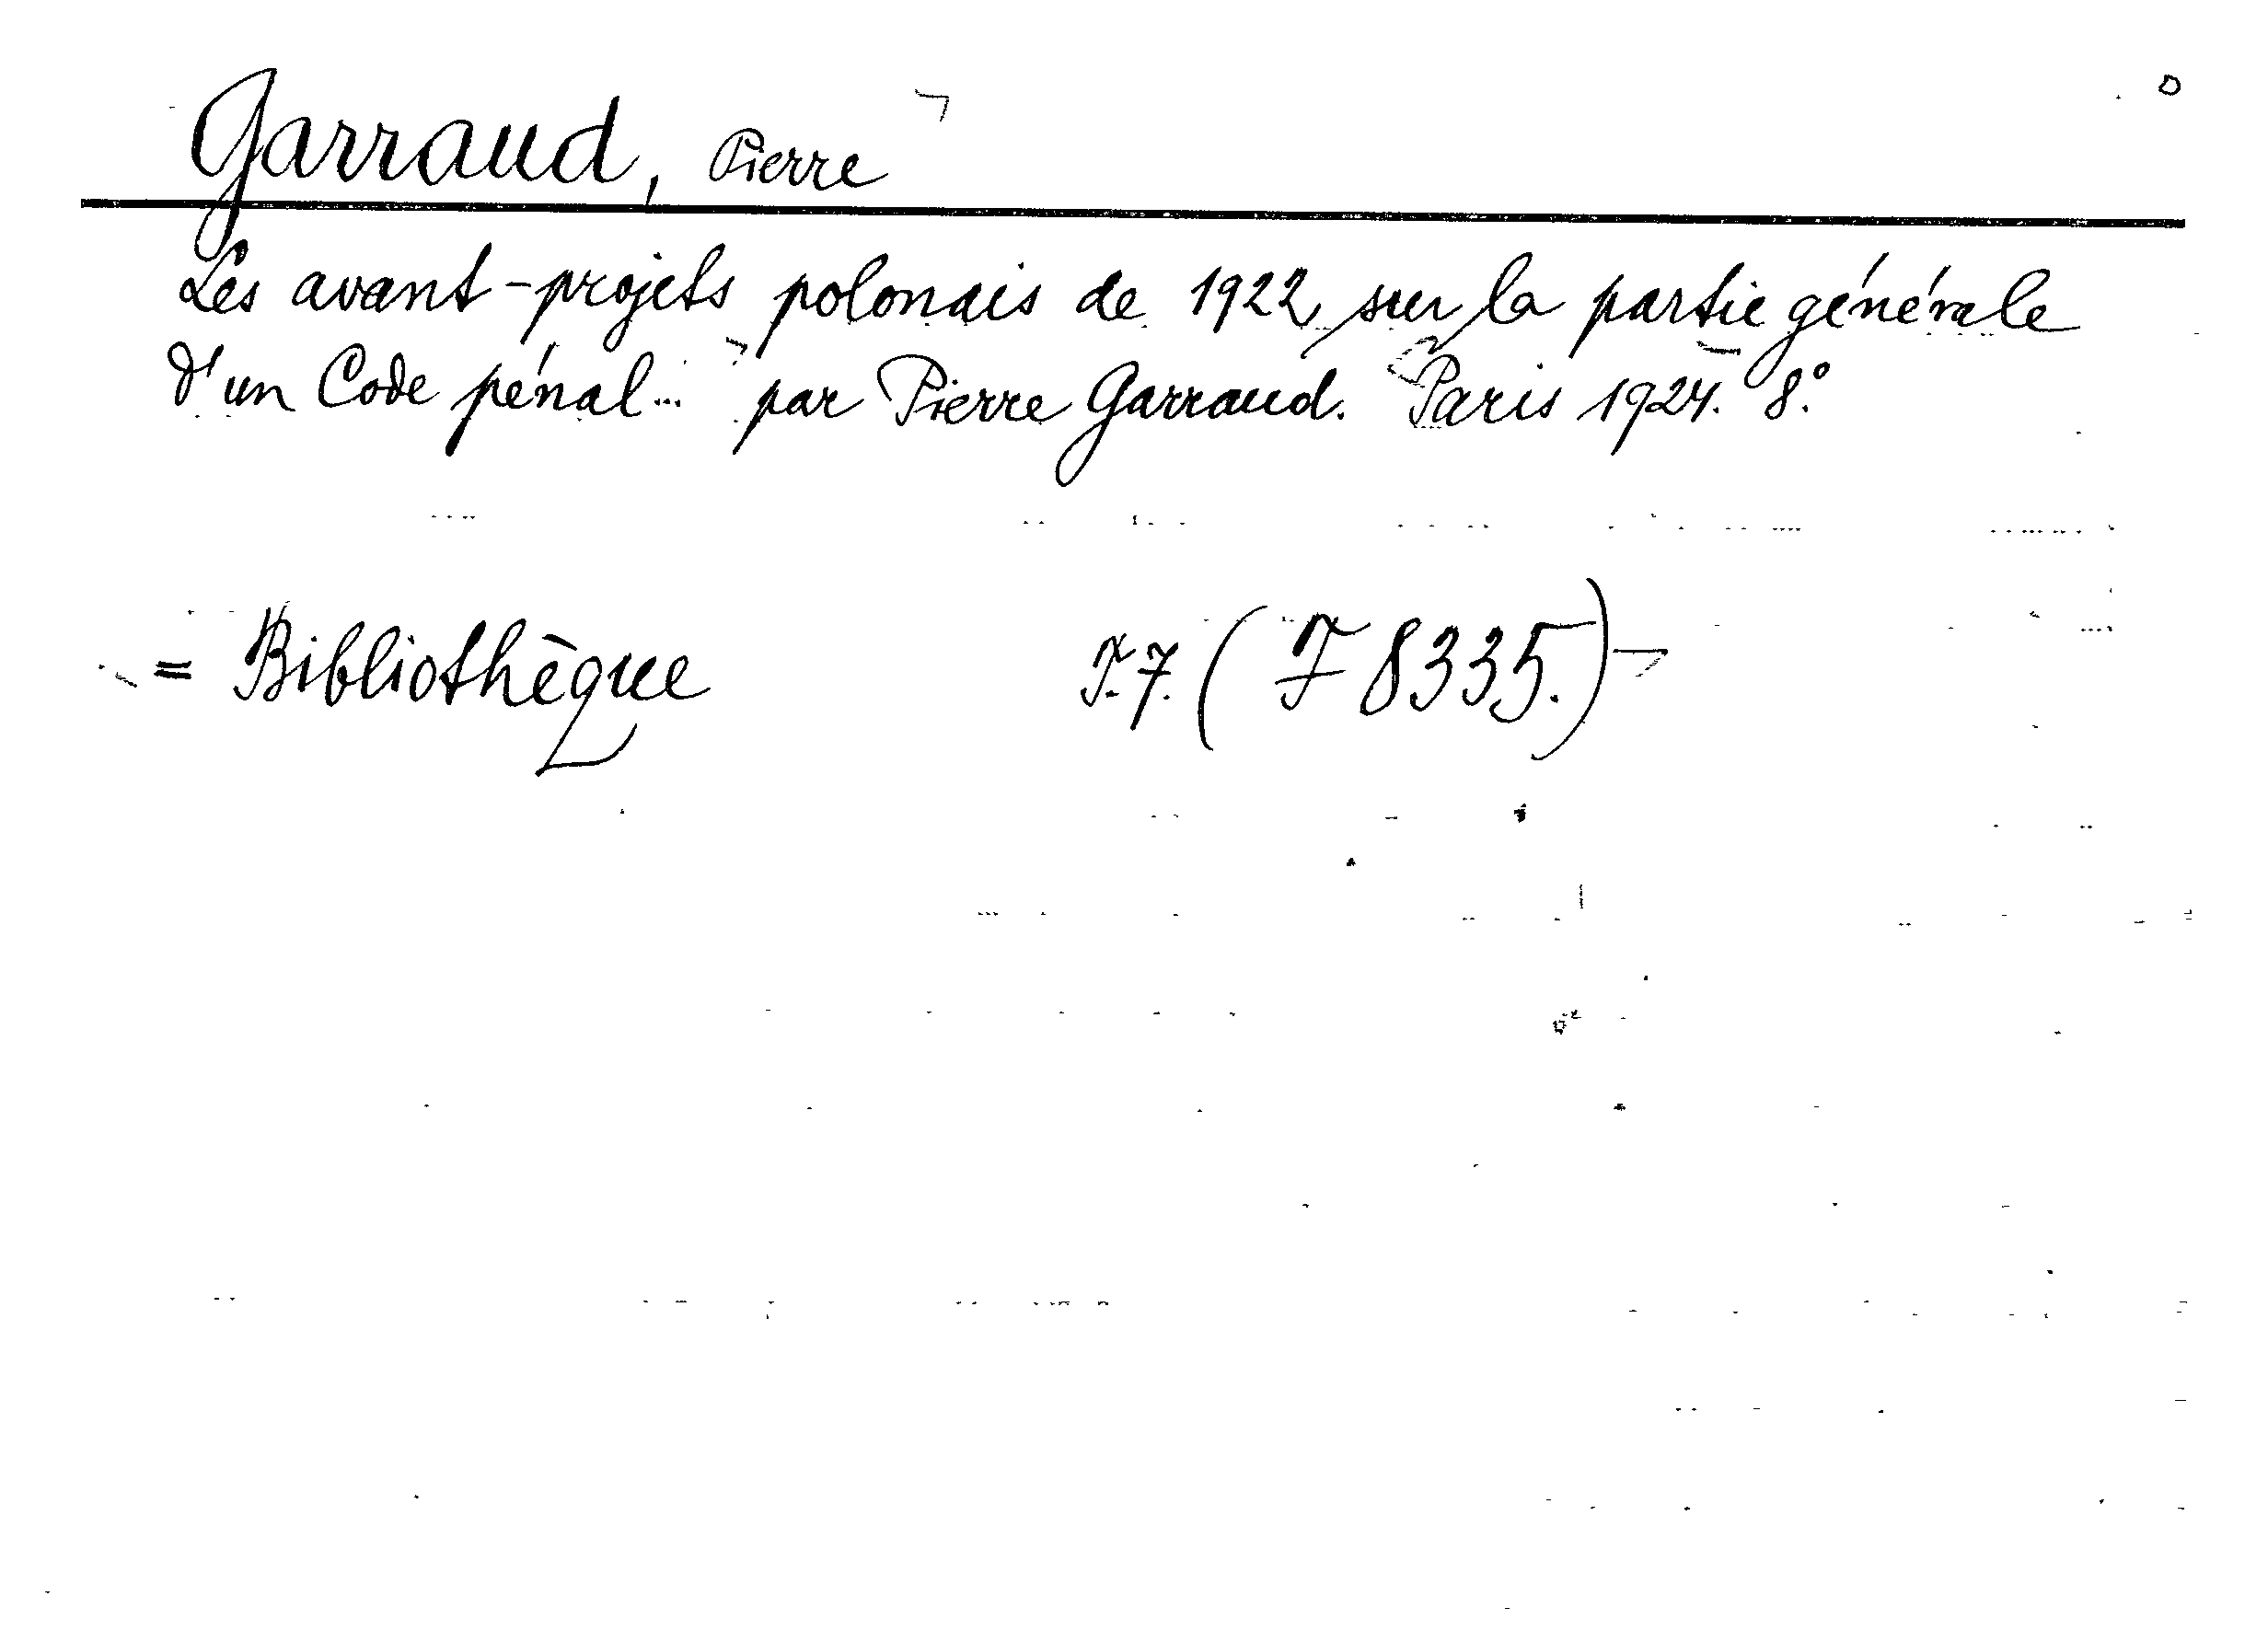 Garraud, Pierre
Les avant-projets polonais de 1922 sur la partie générale
d'un Code pénal... par Pierre Garraud. Paris 1924. 8°.
= Bibliothèque T.7. (F 8335.)